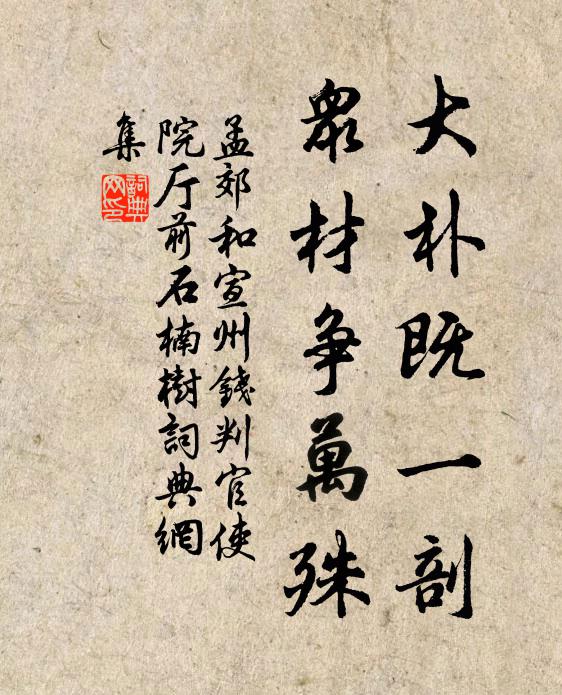 大朴既一剖
衆材争萬殊
孟郊和宣州錢判官使
院厅前石楠樹詞典網
集
詞典
网印